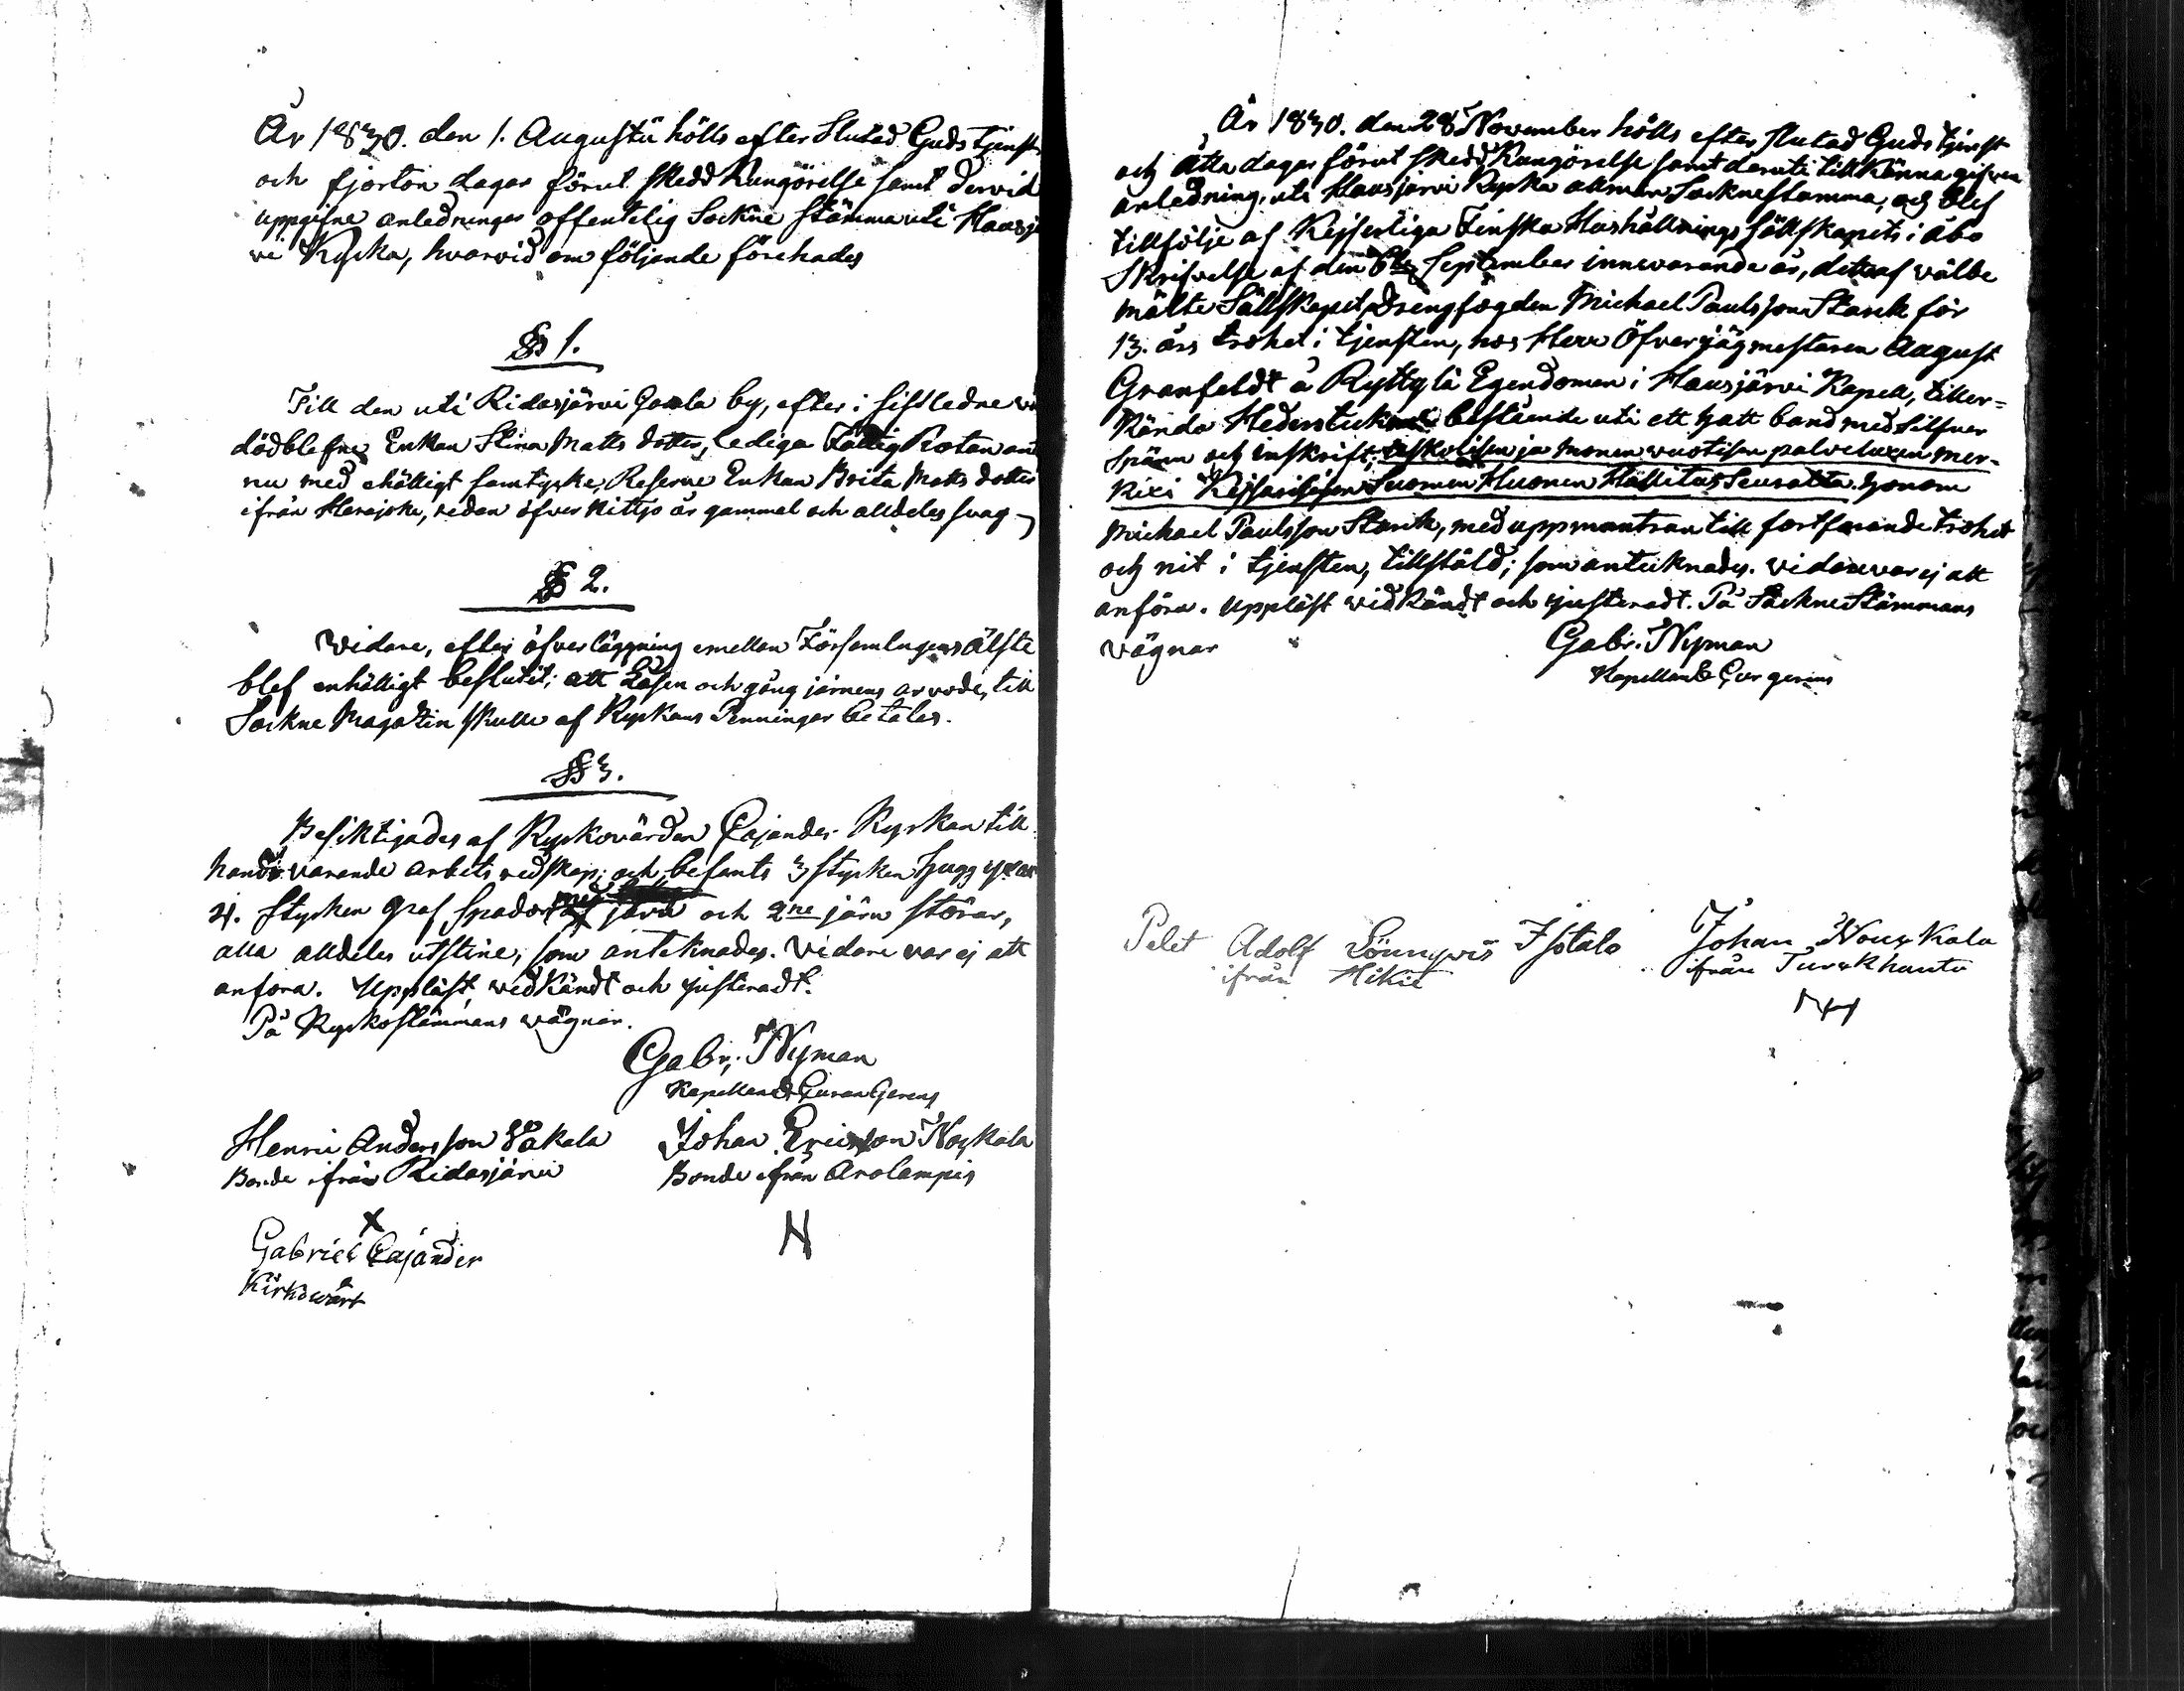 År 1830. den 1. Augusti hölls efter Slutad Gudstjenst
och fjorton dagar förut skedd Kungörelse samt dervid
uppgifne anledningar offentelig Sockne stämma uti Hausj
vi Kyrka, hvarvid om följande förehades
§ 1.
Till den uti Ridasjärvi by, efter i sistledne
dödblefne Enkan Stina Matts dotter, lediga Fattig Rotan
nu med ehälligt samtycke, Reserne Enkan Brita Matts dotter
ifrån Herajoke, redan öfver Nittjo år gammal och alldeles svag
§ 2.
Vidare, efter öfverläggning emellan Församlingens Älste
blef enhälligt beslutit; att Låsen och gång järnens arvode, till
Sockne Magatin skulle af Kyrkans Penningar betalas.
§ 3.
Besiktigades af Kyrkovärden Cajander Kyrkan till
handa varande arbets redskap; och befants 3 stycken hugg yxor
4. stycken Graf Spador med järn och 2ne järn störar,
alla alldeles utsline, som anteknades. Vidare var ej att
anföra. Uppläst, vedkändt och justeradt.
På Kyrkostämmans vägnar.
Gabr. Nyman
Kapellan & Curam Gerens
Henric Andersson Yäkala Johan Ericsson Noykala
Bonde ifrån Ridasjärvi Bonde ifrån Arolampis
X
Gabriel Cajander N
Kirkowärt
År 1830. den 28 November hölls efter slutad Gudstjenst
och åtta dagar förut skedd Kungörelse samt deruti tillkänna gifven
anledning, uti Hausjärvi Kyrka allmän Socknestämma, och blef
tillfölje af Kejserliga Finska Hushållnings Sällskapets i Åbo
Skrifvelse af den September innevarande år, det af välbe
mälte Sällskapet, Drengfogden Michael Paulsson Starck för
13. års trohet i tjensten, hos Herr Öfverjägmestaren August
Granfeldt å Ryttylä Egendomen i Hausjärvi Kapell, tiller=
kända Hederstecknet bestående uti ett hatt band med silfver
spänn och inskrift; uskolisen ja monen vuotisen palveluxen mer=
kixi Kejsarisisen Suomen Huonen Hallitus Seuralta. honom
Michael Paulsson Starck, med uppmantran till fortfarande trohet
och nit i tjensten, tillstäld; som anteknades. vidare var ej att
anföra. Uppläst vidkändt och justeradt. På Sockne Stämmans
vägnar Gabr. Nyman
Kapellan & Cur gerens
Adolf Isotalo Johan Nouskala
ifrån Hikiä ifrån Turckhauta